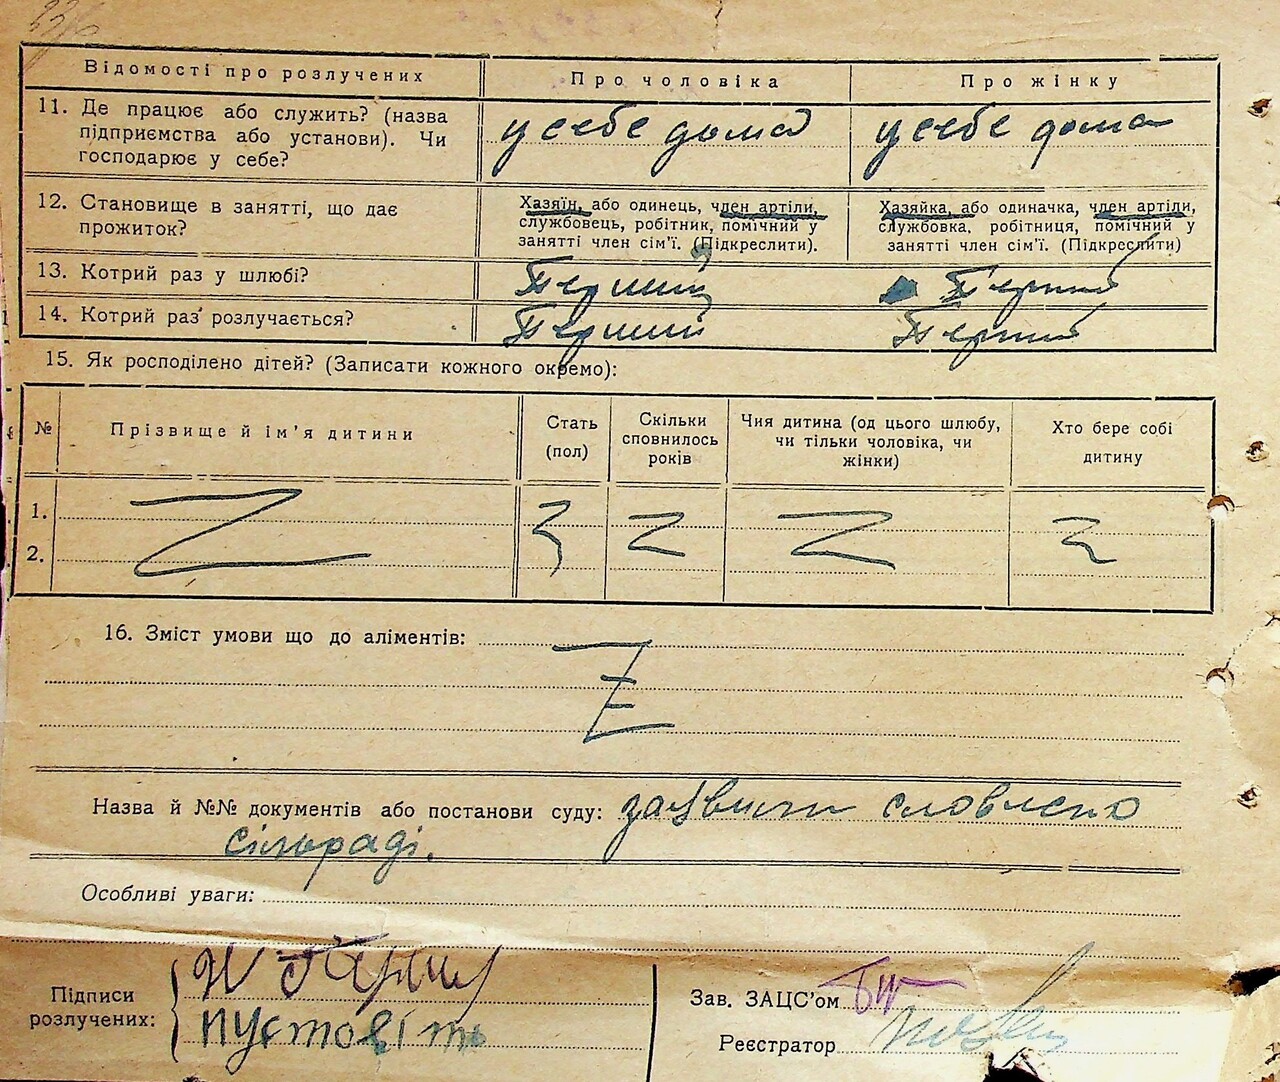 Відомості про розлучених
Про чоловіка
Про жінку
11. Де працює або служить? (назва
підприємства або установи). Чи
господарює у себе?
у себе дома
у себе дома
12. Становище в занятті, що дає
прожиток?
Хазяїн, або одинець, член артіли,
службовець, робітник, помічний у
занятті член сім'ї. (Підкреслити).
Хазяйка, або одиначка, член артіли,
службовка, робітниця, помічний у
занятті член сім'ї. (Підкреслити)
13. Котрий раз у шлюбі?
Перший
Перший
14. Котрий раз розлучається?
Перший
Перший
15. Як росподілено дітей? (Записати кожного окремо):
№
Прізвище й ім'я дитини
Стать
(пол)
Скільки
сповнилось
років
Чия дитина (од цього шлюбу,
чи тільки чоловіка, чи
жінки)
Хто бере собі
дитину
1.
2.
16. Зміст умови що до аліментів:
Назва й №№ документів або постанови суду:
сільраді.
Особливі уваги:
Підписи
розлучених:
Пустовіт
Зав. ЗАЦС'ом
Реєстратор